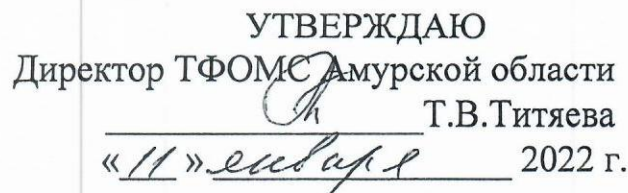 УТВЕРЖДАЮ
Директор ТФОМС Амурской области
Т.В.Титяева
«11» января 2022 г.